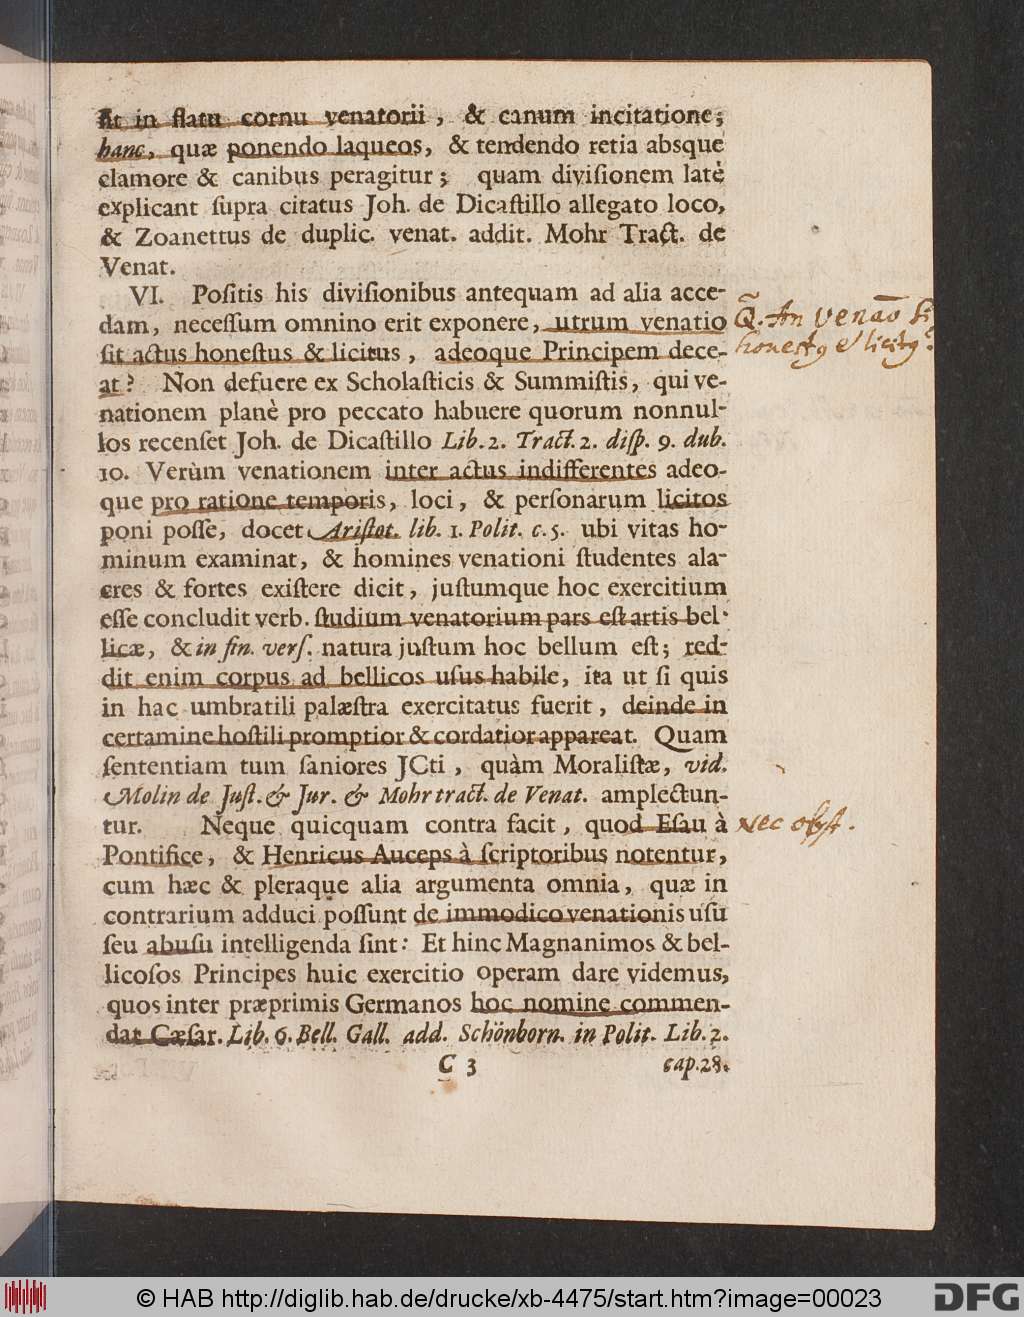 fit in flatu cornu venatorii, & canum incitatione;
hanc, quæ ponendo laqueos, & tendendo retia absque
clamore & canibus peragitur; quam diviſionem latè
explicant ſupra citatus Joh. de Dicaſtillo allegato loco,
& Zoanettus de duplic. venat. addit. Mohr Tract. de
Venat.
VI. Poſitis his diviſionibus antequam ad alia acce-
dam, neceſſum omnino erit exponere, utrum venatio
ſit actus honeſtus & licitus, adeoque Principem dece-
at? Non defuere ex Scholaſticis & Summiſtis, qui ve-
nationem planè pro peccato habuere quorum nonnul-
los recenſet Joh. de Dicaſtillo Lib. 2. Tract. 2. diſp. 9. dub.
10. Verùm venationem inter actus indifferentes adeo-
que pro ratione temporis, loci, & perſonarum licitos
poni poſſe, docet Ariſtot. lib. 1. Polit. c. 5. ubi vitas ho-
minum examinat, & homines venationi ſtudentes ala-
cres & fortes exiſtere dicit, juſtumque hoc exercitium
eſſe concludit verb. ſtudium venatorium pars eſt artis bel-
licæ, & in fin. verſ. natura juſtum hoc bellum eſt; red-
dit enim corpus ad bellicos uſus habile, ita ut ſi quis
in hac umbratili palæſtra exercitatus fuerit, deinde in
certamine hoſtili promptior & cordatior appareat. Quam
ſententiam tum ſaniores JCti, quàm Moraliſtæ, vid.
Molin de Juſt. & Jur. & Mohr tract. de Venat. amplectun-
tur. Neque quicquam contra facit, quod Eſau à
Pontifice, & Henricus Auceps à ſcriptoribus notentur,
cum hæc & pleraque alia argumenta omnia, quæ in
contrarium adduci poſſunt de immodico venationis uſu
ſeu abuſu intelligenda ſint: Et hinc Magnanimos & bel-
licoſos Principes huic exercitio operam dare videmus,
quos inter præprimis Germanos hoc nomine commen-
dat Cæſar. Lib. 6. Bell. Gall. add. Schönborn. in Polit. Lib. 2.
C 3 cap. 28.
Q. An venaõ ſit
honestus & licitus?
Nec obſt.
© HAB http://diglib.hab.de/drucke/xb-4475/start.htm?image=00023
DFG